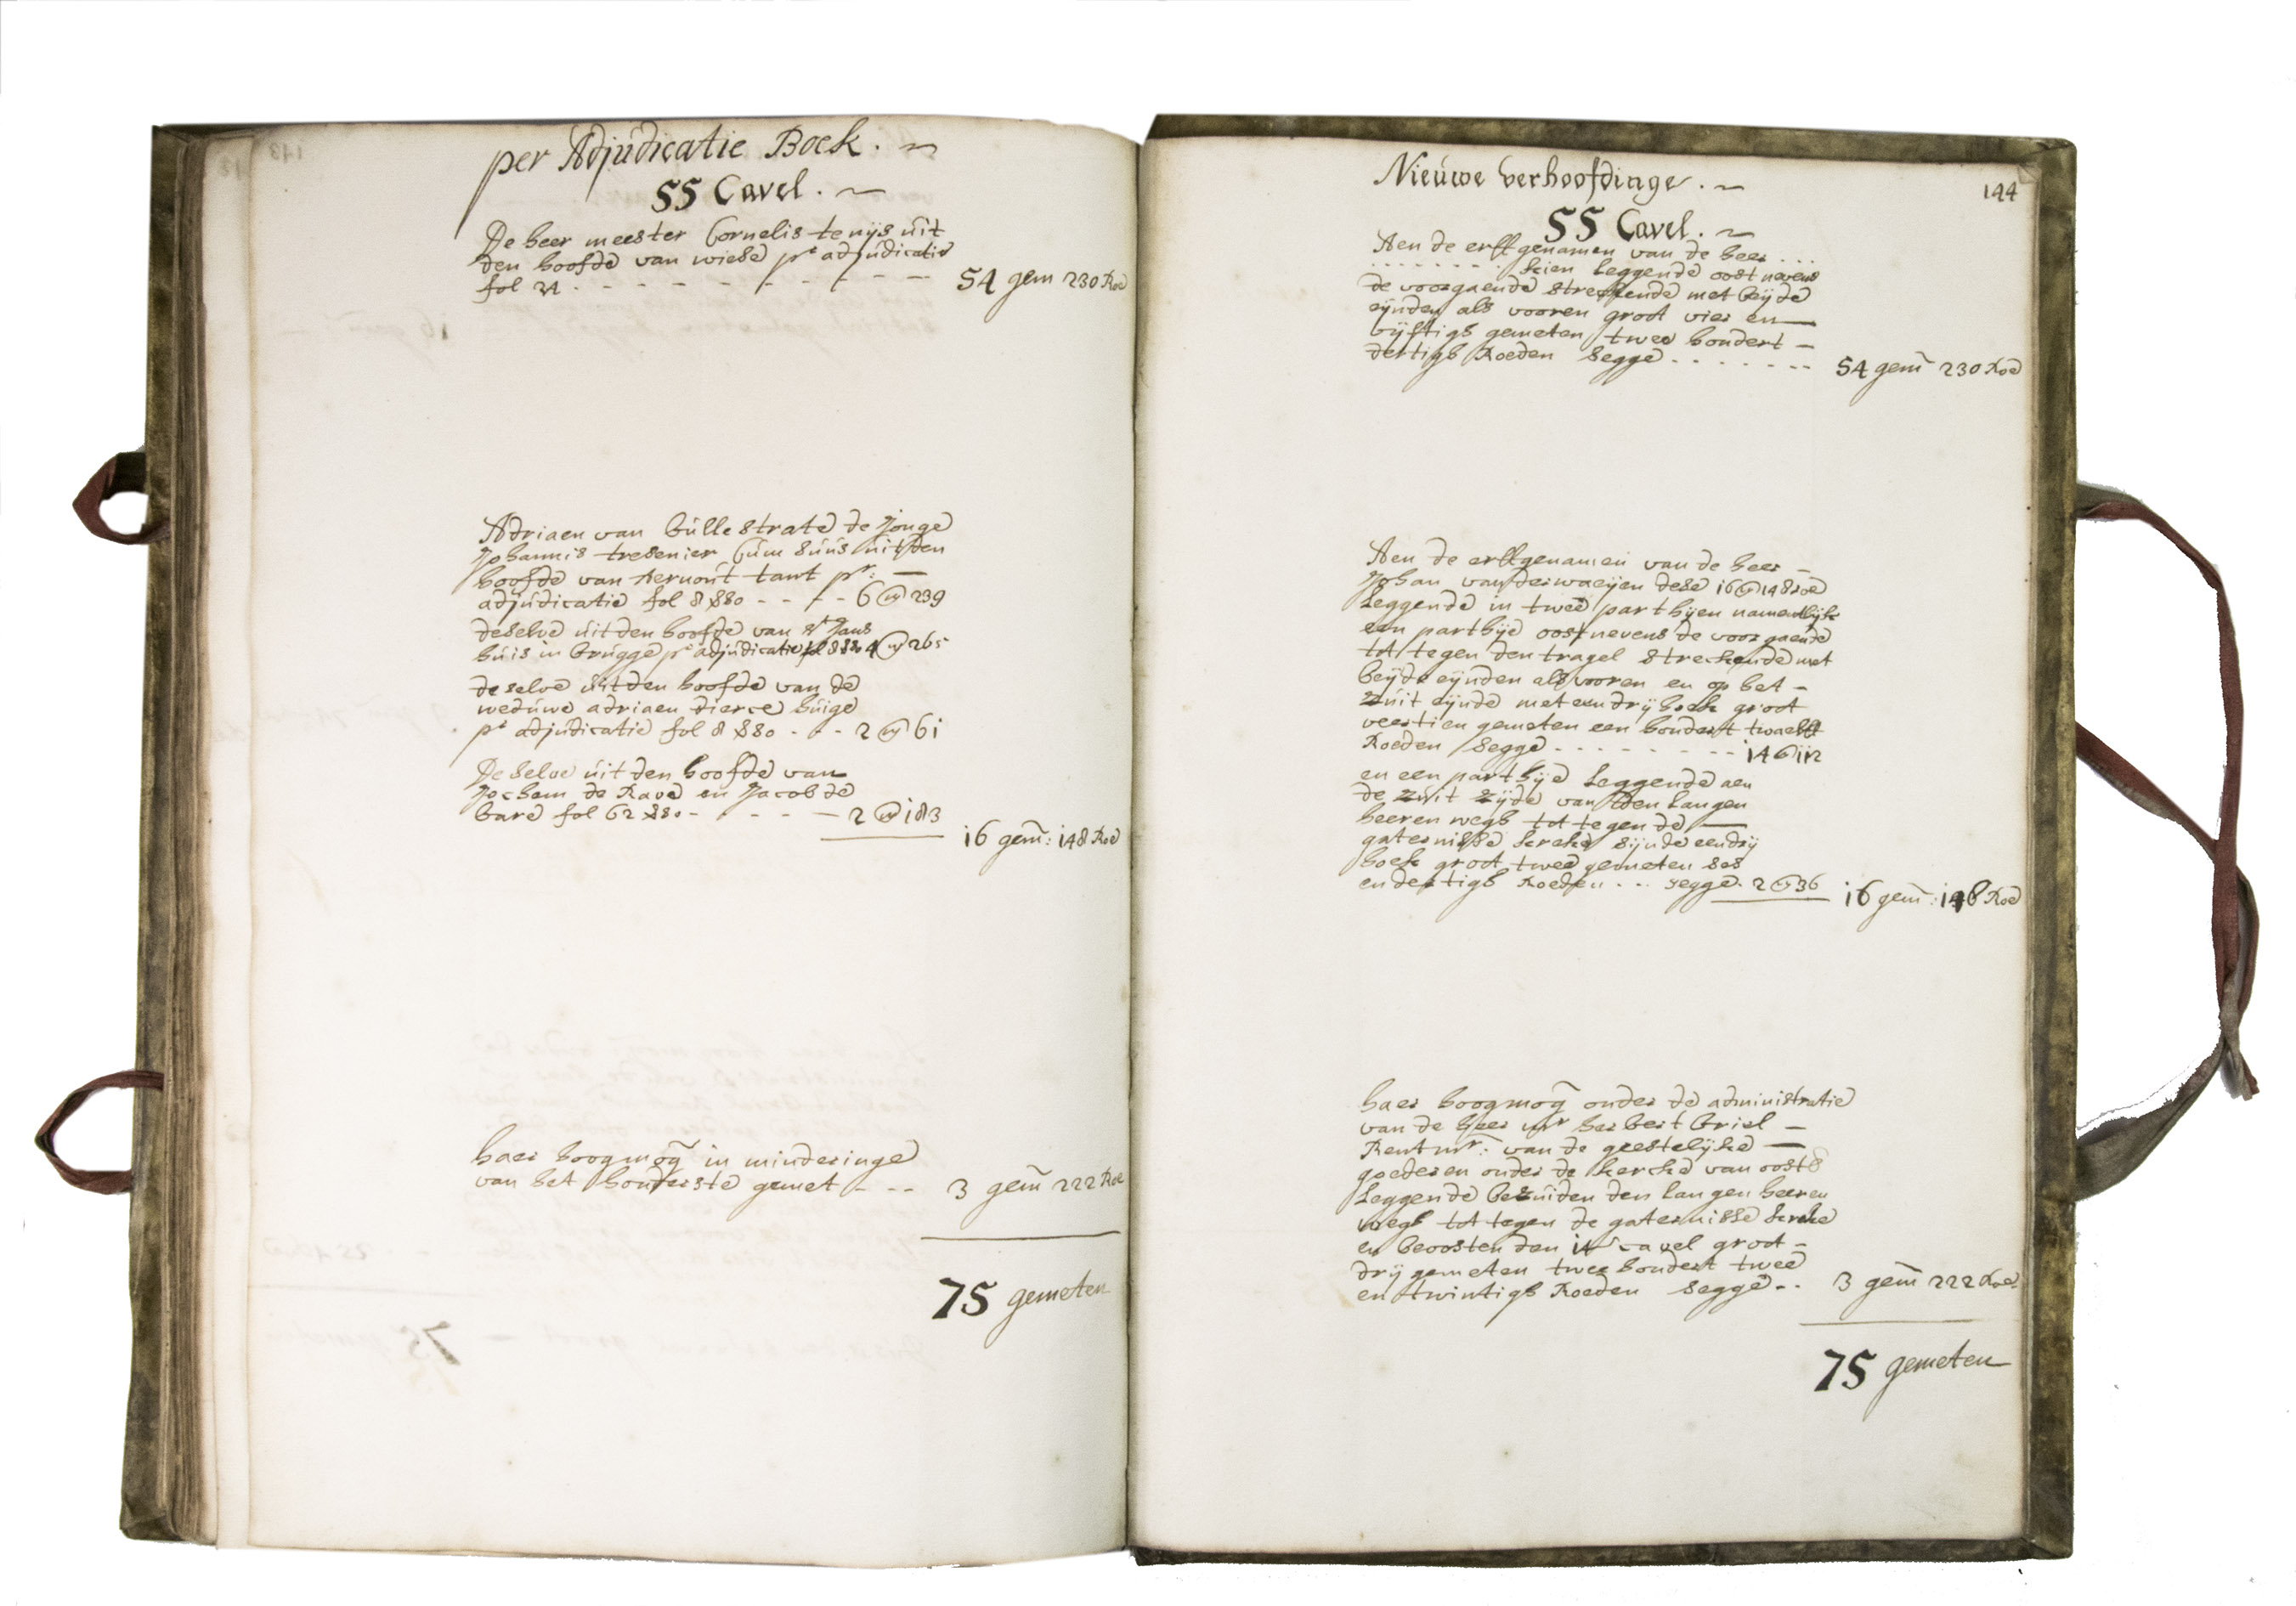 per Adjudicatie Boek.
55 Cavel.
De heer meester Cornelis tenijs uit
den hoofde van wiese pr adjudicatie
fol 21 54 gem 230 Roe
Adriaen van bullestrate de Jonge
Johannis tresenier Cum suus uit den
hoofde van Aernout tant pr:
adjudicatie fol 8 6 239
deselve uit den hoofde van St Jans
huis in brugge pr adjudicatie fol 4 265
de selve uit den hoofde van de
weduwe adriaen dierce buige
pr adjudicatie fol 8 2 61
De selve uit den hoofde van
Jochem de Rave en Jacob de
bare fol 62 2 183
16 gem: 148 Roe
haer hoogmog in minderinge
van het honderste gemet 3 gem 222 Roe
75 gemeten
144
Nieuwe verhoofdinge.
55 Cavel.
Aen de erffgenamen van de heer ...
leggende oost nevens
de voorgaende streckende met beijde
eijnden als vooren groot vier en
vijftigh gemeten twee hondert
dertigh Roeden segge 54 gem 230 Roe
Aen de erffgenamen van de heer
Johan vander waeijen dese 16 148 roe
leggende in twee parthijen namentlijk
een parthije oost nevens de voorgaende
tot tegen den tragel streckende met
beijde eijnden als vooren en op het
zuit eijnde met een drijhoek groot
veertien gemeten een hondert twaelff
Roeden segge 14 112
en een parthije leggende aen
de zuit zijde van den langen
heeren wegh tot tegen de
gaternisse kercke sijnde een drij
hoek groot twee gemeten ses
en dertigh Roeden segge. 2 36 16 gem: 148 Roe
haer hoogmog onder de administratie
van de heer mr herbert briel
Rentmr: van de geestelijke
goederen onder de kercke van oostb
leggende bezuiden den langen heeren
wegh tot tegen de gaternisse kercke
en beoosten den 14 cavel groot
drij gemeten twee hondert twee
en twintigh Roeden segge 3 gem 222 Roe
75 gemeten